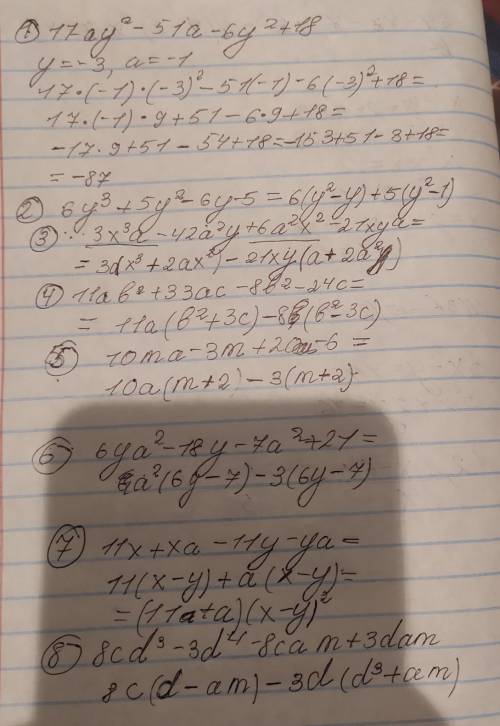 ① 17ay² - 51a - 6y² + 18
y = -3, a = -1
17·(-1)·(-3)² - 51(-1) - 6(-3)² + 18 =
17·(-1)·9 + 51 - 6·9 + 18 =
-17·9 + 51 - 54 + 18 = -153 + 51 - 3 + 18 =
= -87
② 6y³ + 5y² - 6y - 5 = 6(y² - y) + 5(y² - 1)
③ 3x³a - 42a²y + 6a²x² - 21xya =
= 3a(x³ + 2ax²) - 21xy(a + 2a²y)
④ 11aв² + 33ac - 8в² - 24c =
= 11a(в² + 3c) - 8(в² - 3c)
⑤ 10ma - 3m + 20a - 6 =
10a(m + 2) - 3(m + 2)
⑥ 6ya² - 18y - 7a² + 21 =
a²(6y - 7) - 3(6y - 7)
⑦ 11x + xa - 11y - ya =
11(x - y) + a(x - y) =
= (11 + a)(x - y)²
⑧ 8cd³ - 3d⁴ - 8cam + 3dam
8c(d - am) - 3d(d³ + am)